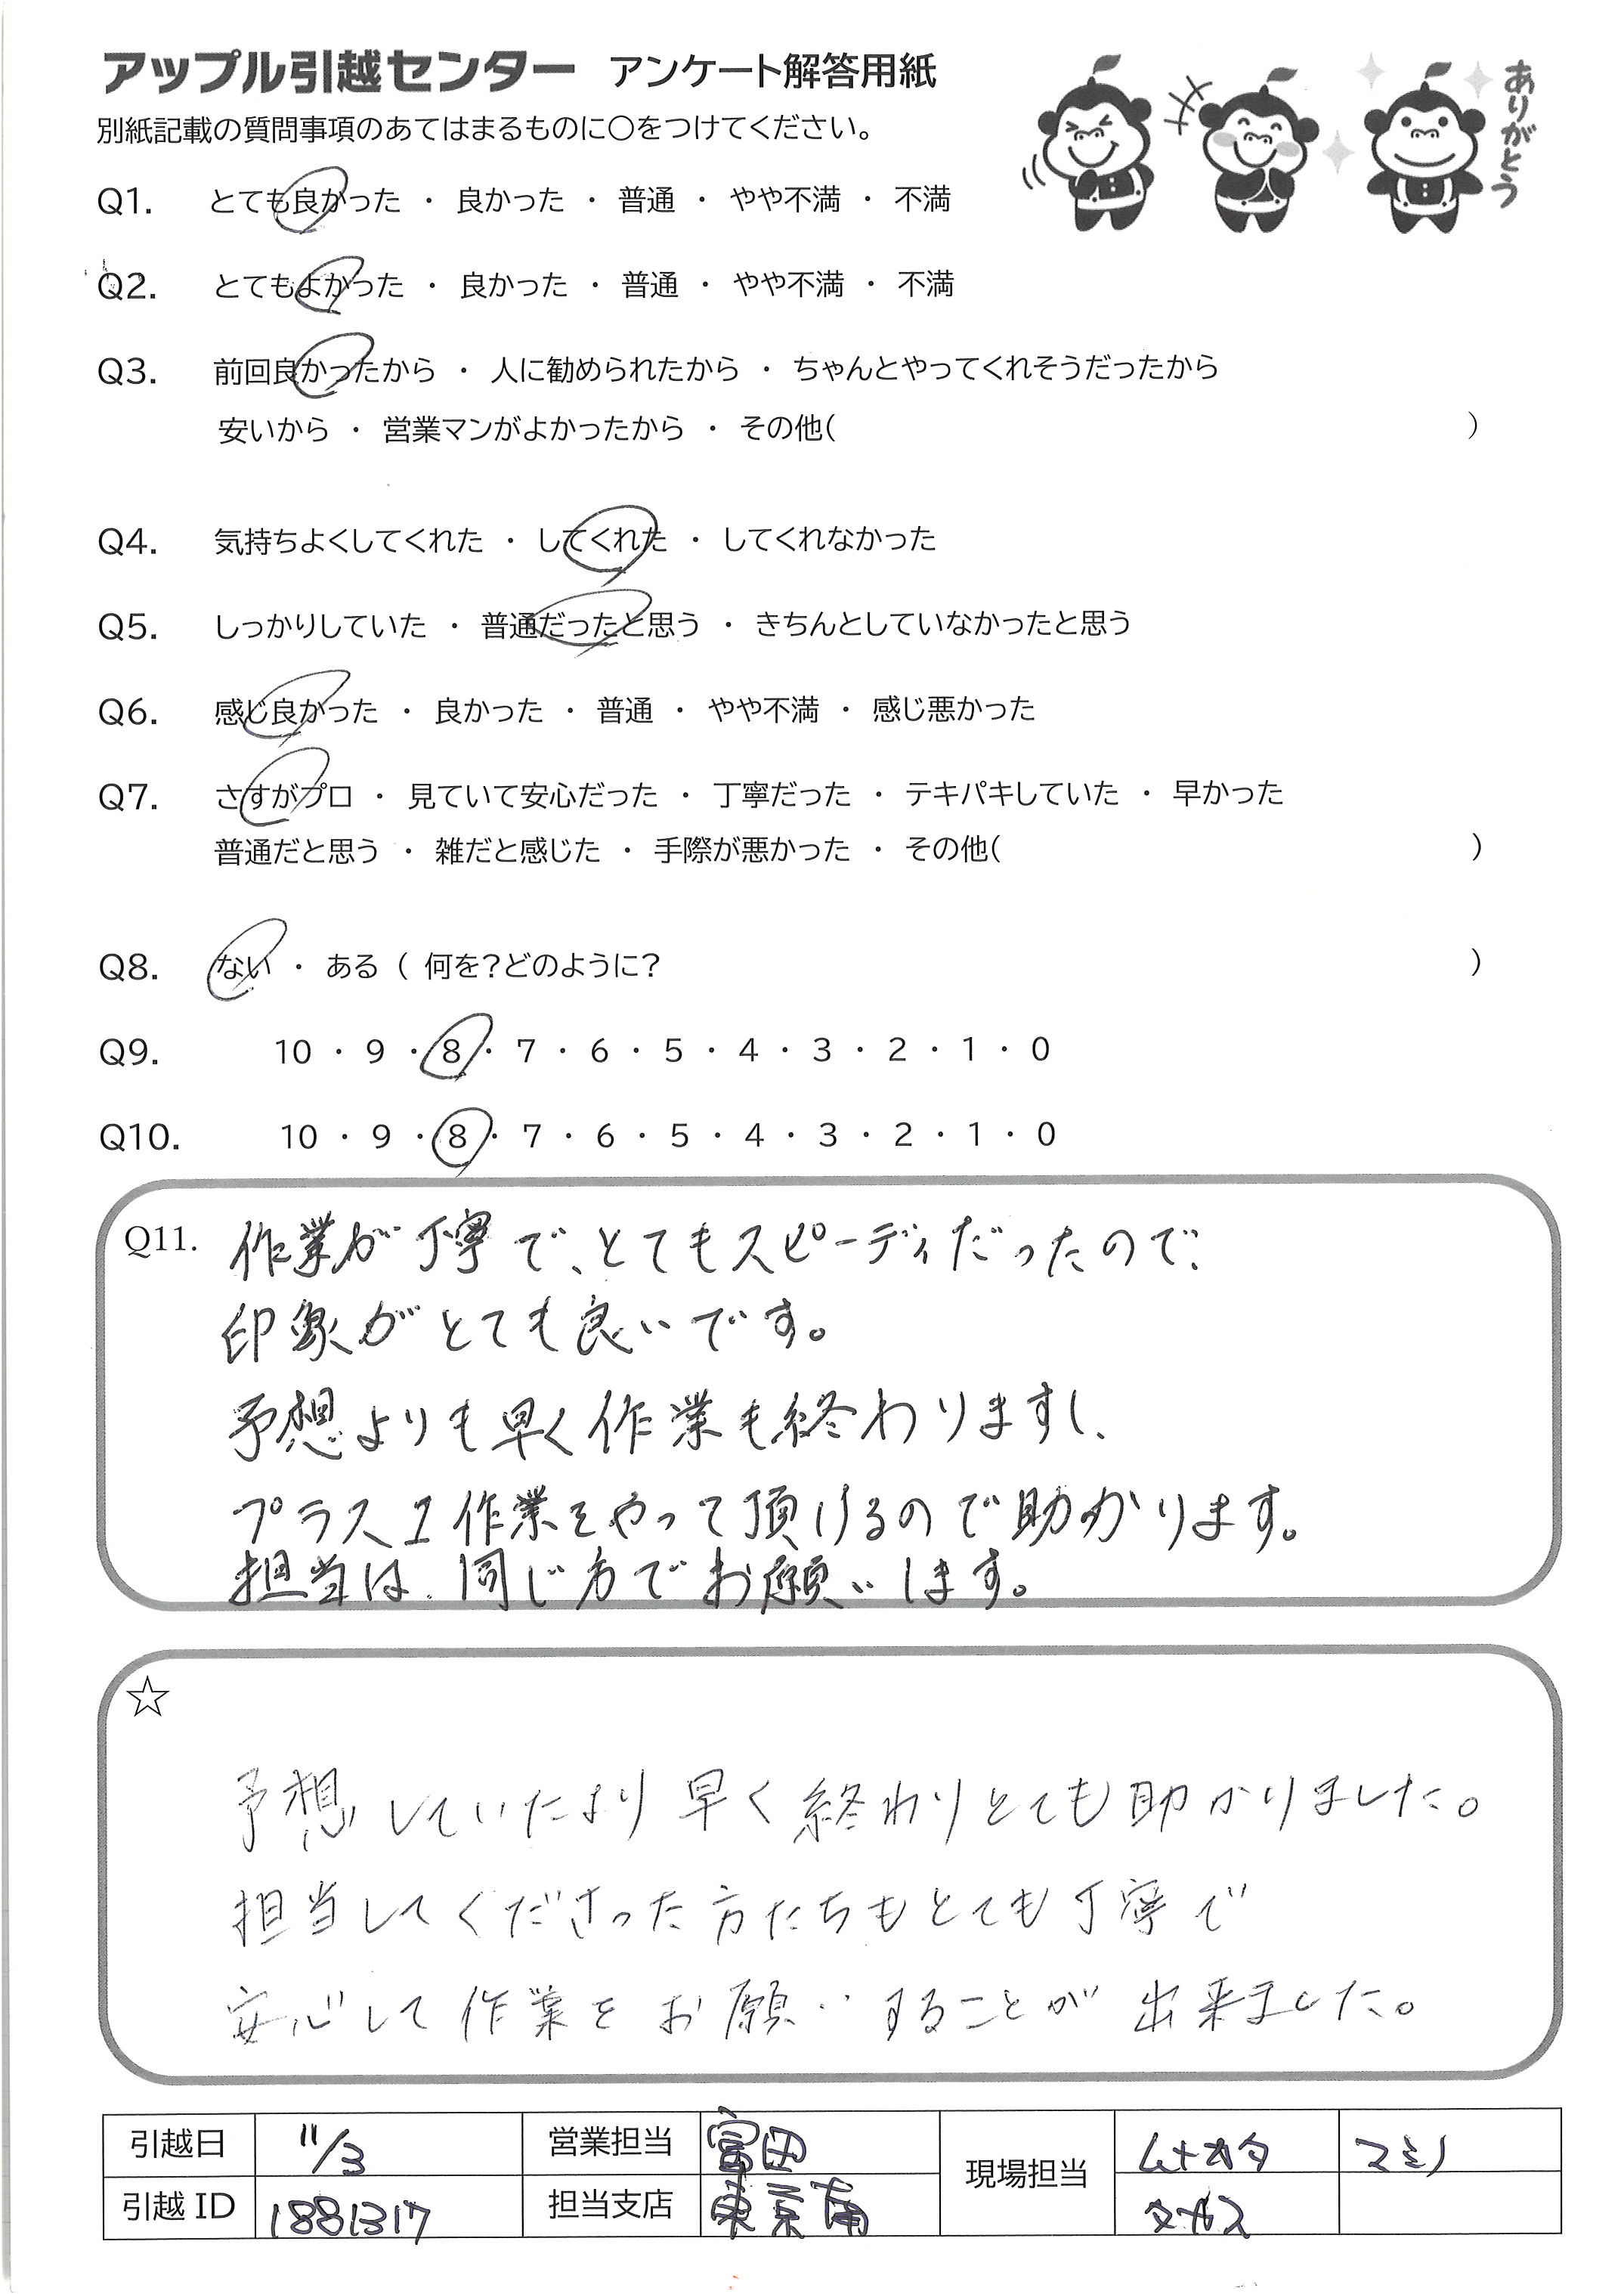 アップル引越センター アンケート解答用紙
ありがとう
別紙記載の質問事項のあてはまるものに○をつけてください。
Q1. とても良かった ・ 良かった ・ 普通 ・ やや不満 ・ 不満
Q2. とてもよかった ・ 良かった ・ 普通 ・ やや不満 ・ 不満
Q3. 前回良かったから ・ 人に勧められたから ・ ちゃんとやってくれそうだったから
安いから ・ 営業マンがよかったから ・ その他( )
Q4. 気持ちよくしてくれた ・ してくれた ・ してくれなかった
Q5. しっかりしていた ・ 普通だったと思う ・ きちんとしていなかったと思う
Q6. 感じ良かった ・ 良かった ・ 普通 ・ やや不満 ・ 感じ悪かった
Q7. さすがプロ ・ 見ていて安心だった ・ 丁寧だった ・ テキパキしていた ・ 早かった
普通だと思う ・ 雑だと感じた ・ 手際が悪かった ・ その他( )
Q8. ない ・ ある ( 何を?どのように? )
Q9. 10 ・ 9 ・ 8 ・ 7 ・ 6 ・ 5 ・ 4 ・ 3 ・ 2 ・ 1 ・ 0
Q10. 10 ・ 9 ・ 8 ・ 7 ・ 6 ・ 5 ・ 4 ・ 3 ・ 2 ・ 1 ・ 0
Q11. 作業が丁寧で、とてもスピーディだったので、
印象がとても良いです。
予想よりも早く作業も終わりますし、
プラス1作業をやって頂けるので助かります。
担当は、同じ方でお願いします。
☆
予想していたより早く終わりとても助かりました。
担当してくださった方たちもとても丁寧で
安心して作業をお願いすることが出来ました。
引越日 11/3 営業担当 富田 現場担当 ムナカタ マミノ
引越ID 1881317 担当支店 東京南